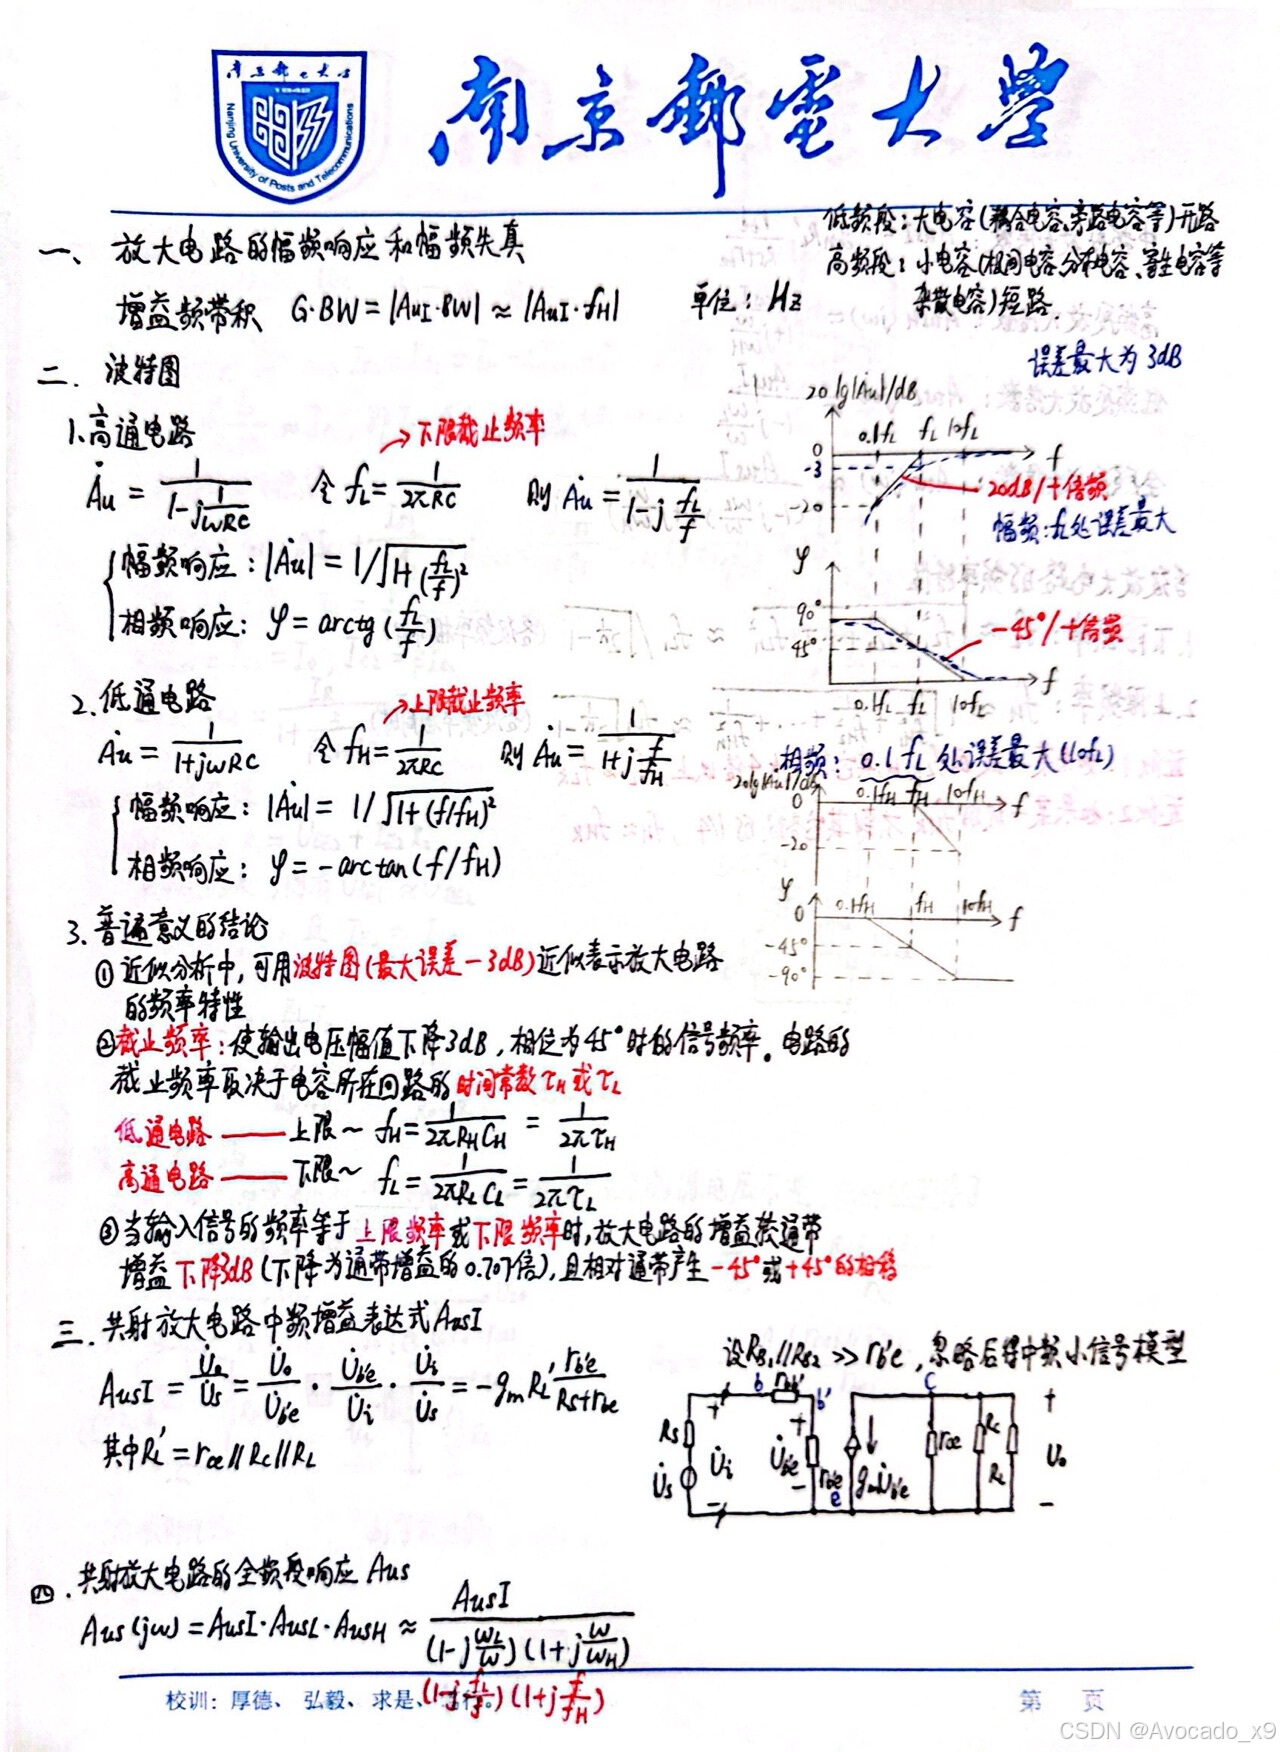 南京邮电大学
Nanjing University of Posts and Telecommunications
南京郵電大學
低频段：大电容(耦合电容、旁路电容等)开路
高频段：小电容(极间电容、分布电容、寄生电容等
杂散电容)短路
一、放大电路的幅频响应和幅频失真
增益频带积 G·BW = |AuI·BW| ≈ |AuI·fH| 单位：Hz
二. 波特图
误差最大为3dB
1.高通电路
→下限截止频率
Ȧu = 1/(1-j 1/ωRC) 令 fL = 1/2πRC 则 Ȧu = 1/(1-j fL/f)
幅频响应：|Ȧu| = 1/√(1+(fL/f)²)
相频响应：φ = arctg(fL/f)
20lg|Ȧu|/dB
0.1fL fL 10fL
0
-3
-20
f
20dB/十倍频
幅频：fL处误差最大
φ
90°
45°
-45°/十倍频
0.1fL fL 10fL
f
相频：0.1fL处误差最大(10fL)
2.低通电路
→上限截止频率
Ȧu = 1/(1+jωRC) 令 fH = 1/2πRC 则 Ȧu = 1/(1+j f/fH)
幅频响应：|Ȧu| = 1/√(1+(f/fH)²)
相频响应：φ = -arctan(f/fH)
20lg|Au|/dB
0.1fH fH 10fH
0
-20
f
φ
0.1fH fH 10fH
0
-45°
-90°
f
3.普遍意义的结论
①近似分析中，可用波特图(最大误差-3dB)近似表示放大电路
的频率特性
②截止频率：使输出电压幅值下降3dB，相位为45°时的信号频率。电路的
截止频率取决于电容所在回路的时间常数τH或τL
低通电路——上限~ fH = 1/2πRHCH = 1/2πτH
高通电路——下限~ fL = 1/2πRLCL = 1/2πτL
③当输入信号的频率等于上限频率或下限频率时，放大电路的增益较通带
增益下降3dB(下降为通带增益的0.707倍)，且相对通带产生-45°或+45°的相移
三.共射放大电路中频增益表达式AusI
AusI = U̇o/U̇s = U̇o/U̇b'e · U̇b'e/U̇i · U̇i/U̇s = -gmRL' rb'e/(Rs+rbe)
其中RL' = rce//Rc//RL
设RB1//RB2 >> rbe，忽略后得中频小信号模型
b rbb' b' c
Rs + U̇i - U̇s
+ U̇b'e - rb'e e gmU̇b'e rce Rc RL + U̇o -
四.共射放大电路的全频段响应Aus
Aus(jω) = AusI·AusL·AusH ≈ AusI/((1-j ωL/ω)(1+j ω/ωH))
(1-j fL/f)(1+j f/fH)
校训：厚德、弘毅、求是、
第 页
CSDN @Avocado_x9